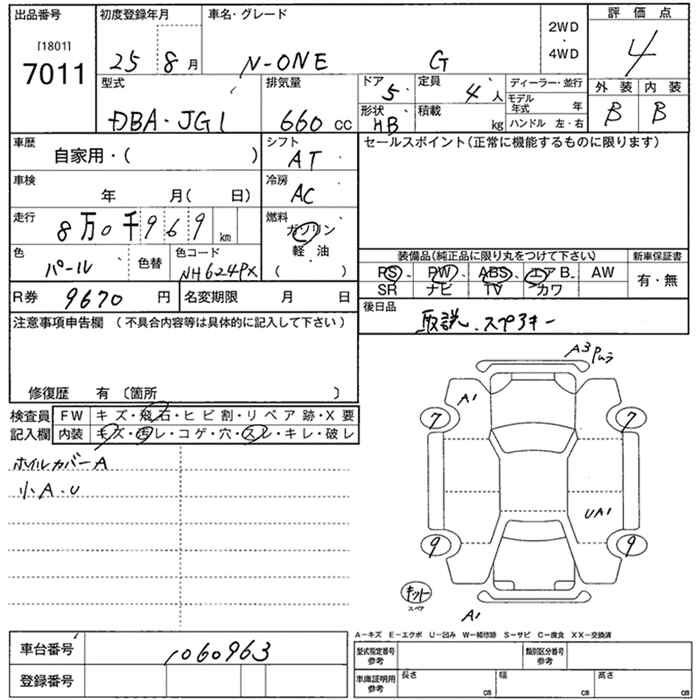 出品番号
[1801]
7011
初度登録年月
25 8 月
車名・グレード
N-ONE G
2WD
・
4WD
評価点
4
外装 内装
B B
型式
DBA・JG1
排気量
660 cc
ドア 5
形状 HB
定員 4 人
積載 kg
ディーラー・並行
モデル年式 年
ハンドル 左・右
車歴
自家用・( )
シフト
AT
セールスポイント(正常に機能するものに限ります)
車検
年 月( 日)
冷房
AC
走行
8万0千969 km
燃料
ガソリン
軽・油
( )
色
パール
色替
色コード
NH624PX
装備品(純正品に限り丸をつけて下さい)
PS PW ABS エアB. AW
SR ナビ TV カワ
新車保証書
有・無
R券 9670 円
名変期限 月 日
後日品
取説、スペアキー
注意事項申告欄 (不具合内容等は具体的に記入して下さい)
修復歴 有 〔箇所 〕
検査員
記入欄
FW キズ・飛石・ヒビ割・リペア跡・X要
内装 キズ・汚レ・コゲ・穴・スレ・キレ・破レ
ホイルカバーA
小A・U
A3
A1
7
7
UA1
9
9
キット
スペア
A1
A−キズ E−エクボ U−凹み W−補修跡 S−サビ C−腐食 XX−交換済
車台番号 1060963
登録番号
型式指定番号
参考
類別区分番号
参考
車庫証明用
参考
長さ cm
幅 cm
高さ cm